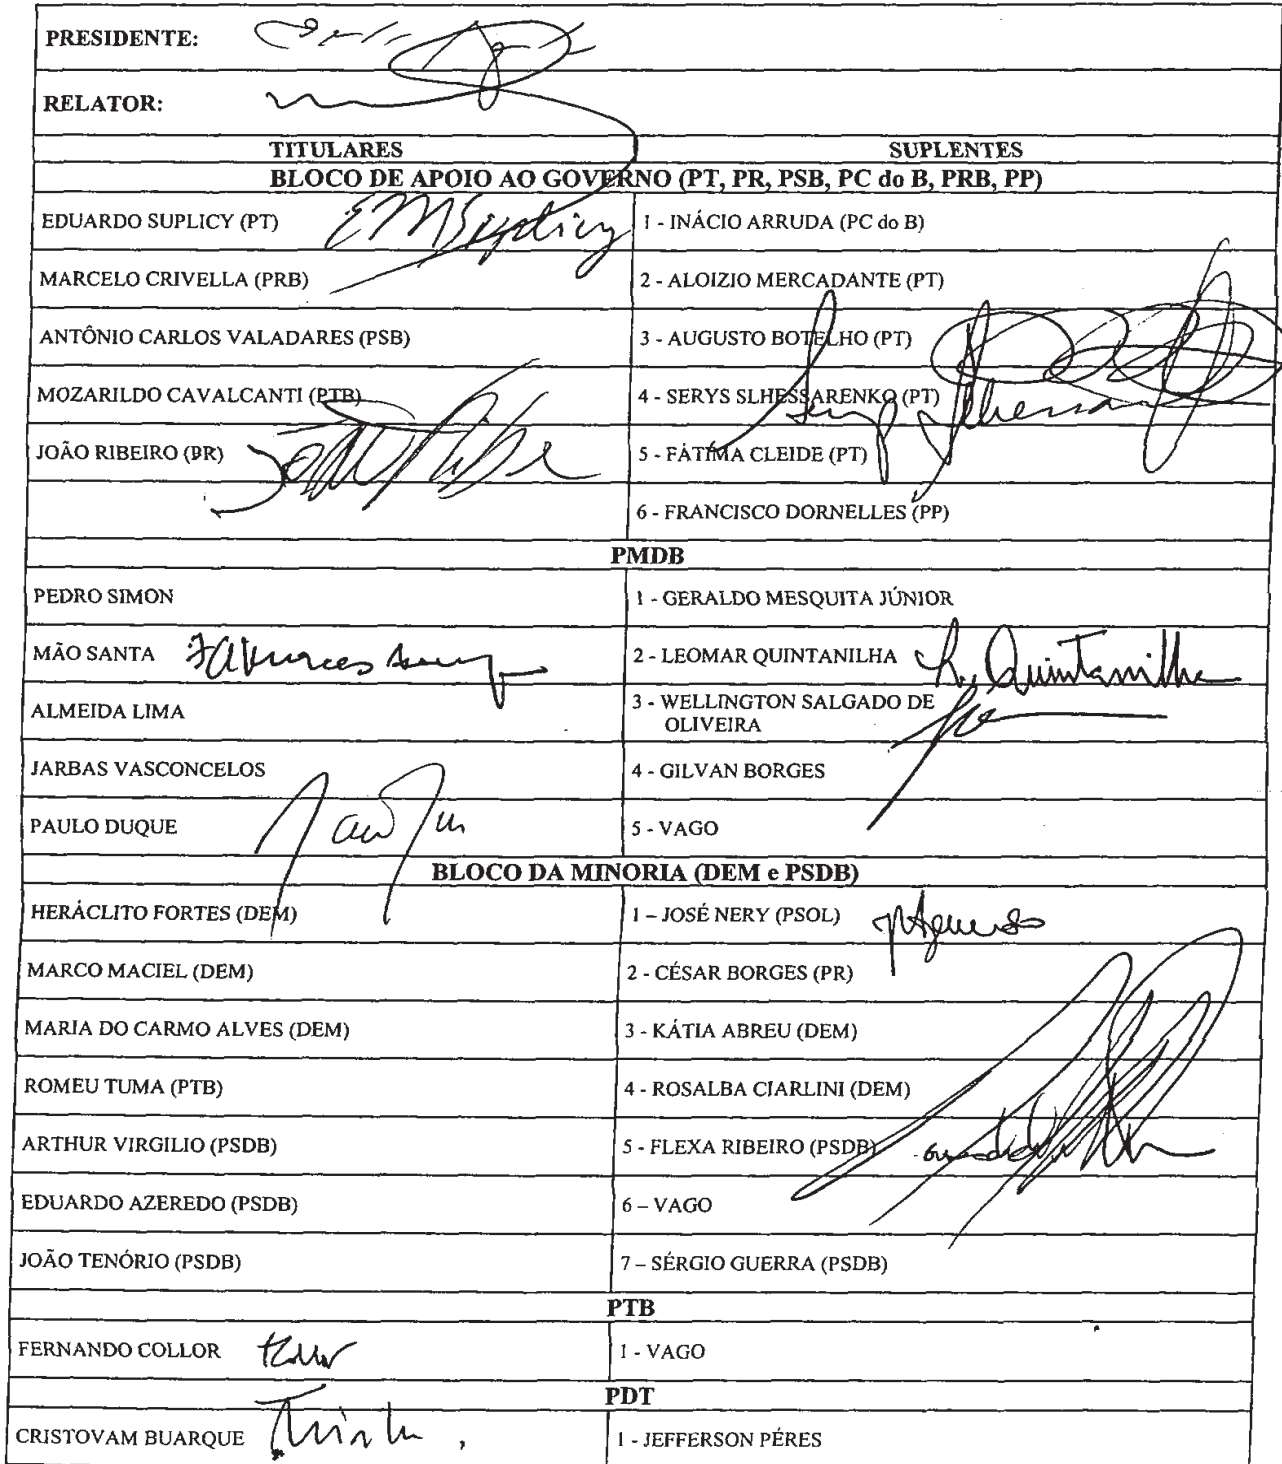 PRESIDENTE:
RELATOR:
TITULARES SUPLENTES
BLOCO DE APOIO AO GOVERNO (PT, PR, PSB, PC do B, PRB, PP)
EDUARDO SUPLICY (PT) EMSuplicy 1 - INÁCIO ARRUDA (PC do B)
MARCELO CRIVELLA (PRB) 2 - ALOIZIO MERCADANTE (PT)
ANTÔNIO CARLOS VALADARES (PSB) 3 - AUGUSTO BOTELHO (PT)
MOZARILDO CAVALCANTI (PTB) 4 - SERYS SLHESSARENKO (PT)
JOÃO RIBEIRO (PR) 5 - FÁTIMA CLEIDE (PT)
6 - FRANCISCO DORNELLES (PP)
PMDB
PEDRO SIMON 1 - GERALDO MESQUITA JÚNIOR
MÃO SANTA 2 - LEOMAR QUINTANILHA L. Quintanilha
ALMEIDA LIMA 3 - WELLINGTON SALGADO DE
OLIVEIRA
JARBAS VASCONCELOS 4 - GILVAN BORGES
PAULO DUQUE 5 - VAGO
BLOCO DA MINORIA (DEM e PSDB)
HERÁCLITO FORTES (DEM) 1 – JOSÉ NERY (PSOL)
MARCO MACIEL (DEM) 2 - CÉSAR BORGES (PR)
MARIA DO CARMO ALVES (DEM) 3 - KÁTIA ABREU (DEM)
ROMEU TUMA (PTB) 4 - ROSALBA CIARLINI (DEM)
ARTHUR VIRGILIO (PSDB) 5 - FLEXA RIBEIRO (PSDB)
EDUARDO AZEREDO (PSDB) 6 – VAGO
JOÃO TENÓRIO (PSDB) 7 – SÉRGIO GUERRA (PSDB)
PTB
FERNANDO COLLOR 1 - VAGO
PDT
CRISTOVAM BUARQUE 1 - JEFFERSON PÉRES